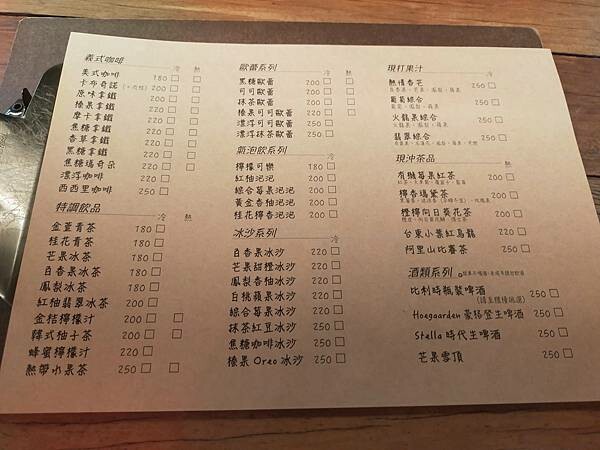 義式咖啡 冷 熱
美式咖啡 180
卡布奇諾 200
原味拿鐵 200
榛果拿鐵 220
摩卡拿鐵 220
焦糖拿鐵 220
香草拿鐵 220
黑糖拿鐵 220
焦糖瑪奇朵 220
漂浮咖啡 250
西西里咖啡 250
特調飲品 冷 熱
金萱青茶 180
桂花青茶 180
芒果冰茶 180
百香果冰茶 180
鳳梨冰茶 180
紅柚翡翠冰茶 200
金桔檸檬汁 200
韓式柚子茶 200
蜂蜜檸檬汁 220
熱帶水果茶 250
歐蕾系列 冷 熱
黑糖歐蕾 200
可可歐蕾 200
抹茶歐蕾 200
榛果可可歐蕾 220
漂浮可可歐蕾 250
漂浮抹茶歐蕾 250
氣泡飲系列 冷
檸檬可樂 180
紅柚泡泡 200
綜合莓果泡泡 200
黃金香柚泡泡 200
桂花檸香泡泡 200
冰沙系列 冷
百香果冰沙 220
芒果甜橙冰沙 220
鳳梨香柚冰沙 220
白桃蘋果冰沙 220
綜合莓果冰沙 220
抹茶紅豆冰沙 250
焦糖咖啡冰沙 250
榛果 Oreo 冰沙 250
現打果汁 冷
熱情香芒 200
葡萄綜合 200
火龍果綜合 200
翡翠綜合 200
現沖茶品 熱
有機莓果紅茶 200
檸香瑪黛茶 200
橙檸向日葵花茶 200
台東小葉紅烏龍 220
阿里山比賽茶 250
酒類系列
比利時瓶裝啤酒 250
Hoegaarden 豪格登生啤酒 250
Stella 時代生啤酒 250
芒果雪頂 250